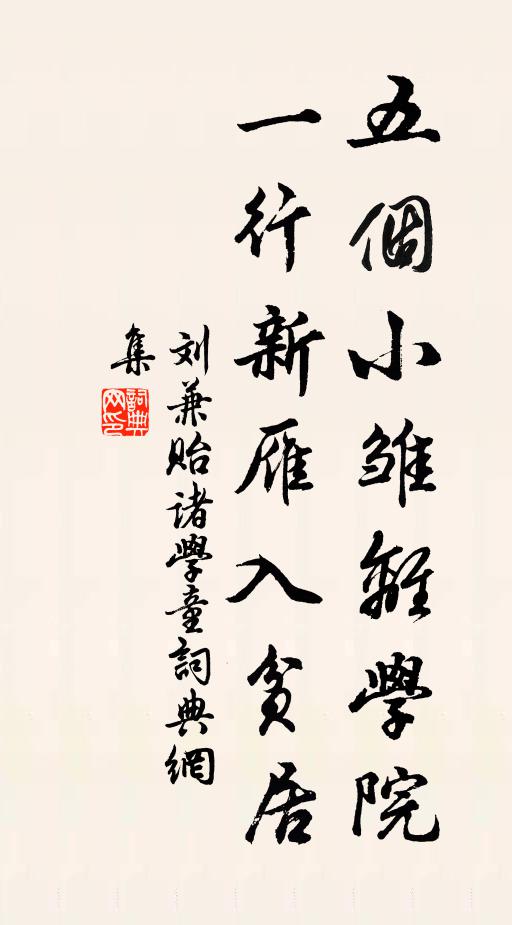 五個小雏離學院
一行新雁入貧居
刘兼貽诸學童詞典網
集
詞典
网印